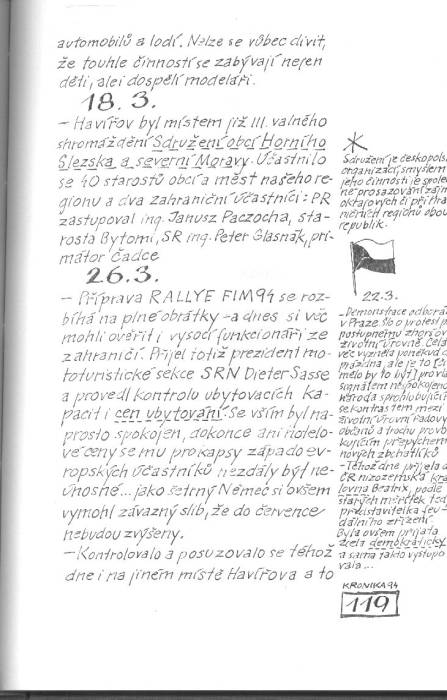 automobilů a lodí. Nelze se vůbec divit,
že touhle činností se zabývají nejen
děti, ale i dospělí modeláři.
18.3.
- Havířov byl místem již III. valného
shromáždění Sdružení obcí Horního
Slezska a severní Moravy. Účastnilo
se 40 starostů obcí a měst našeho re-
gionu a dva zahraniční účastníci: PR
zastupoval ing. Janusz Paczocha, sta-
rosta Bytomi, SR ing. Peter Glasnák, pri-
mátor Čadce
26.3.
- Příprava RALLYE FIM 94 se roz-
bíhá na plné obrátky - a dnes si věc
mohli ověřit i vysocí funkcionáři ze
zahraničí. Přijel totiž prezident mo-
toturistické sekce SRN Dieter Sasse
a provedl kontrolu ubytovacích ka-
pacit i cen ubytování. Se vším byl na-
prosto spokojen, dokonce ani hotelo-
vé ceny se mu pro kapsy západoev-
ropských účastníků nezdály být ne-
únosné... jako šetrný Němec si ovšem
vymohl závazný slib, že do července
nebudou zvýšeny.
- Kontrolovalo a posuzovalo se téhož
dne i na jiném místě Havířova a to
*
Sdružení je českopols
organizací, smyslem
jeho činnosti je spole
né prosazování zájm
okrajových či příhra
ničních regionů obou
republik.
22.3.
- Demonstrace odborá
v Praze. Šlo o protest p
postupnému zhoršov
životní úrovně. Celá
věc vyzněla poněkud d
prázdna, ale je to
mělo by to být prvn
signálem nespokojeno
národa
se kontrastem mezi
životní úrovní řadový
občanů a trochu provo
kujícím přepychem
nových zbohatlíků
- Téhož dne přijela d
ČR nizozemská krá
lovna Beatrix, podle
starých měřítek ted
představitelka feu-
dálního zřízení.
Byla ovšem přijata
zcela demokraticky
a sama takto vystupo
vala...
KRONIKA 94
119